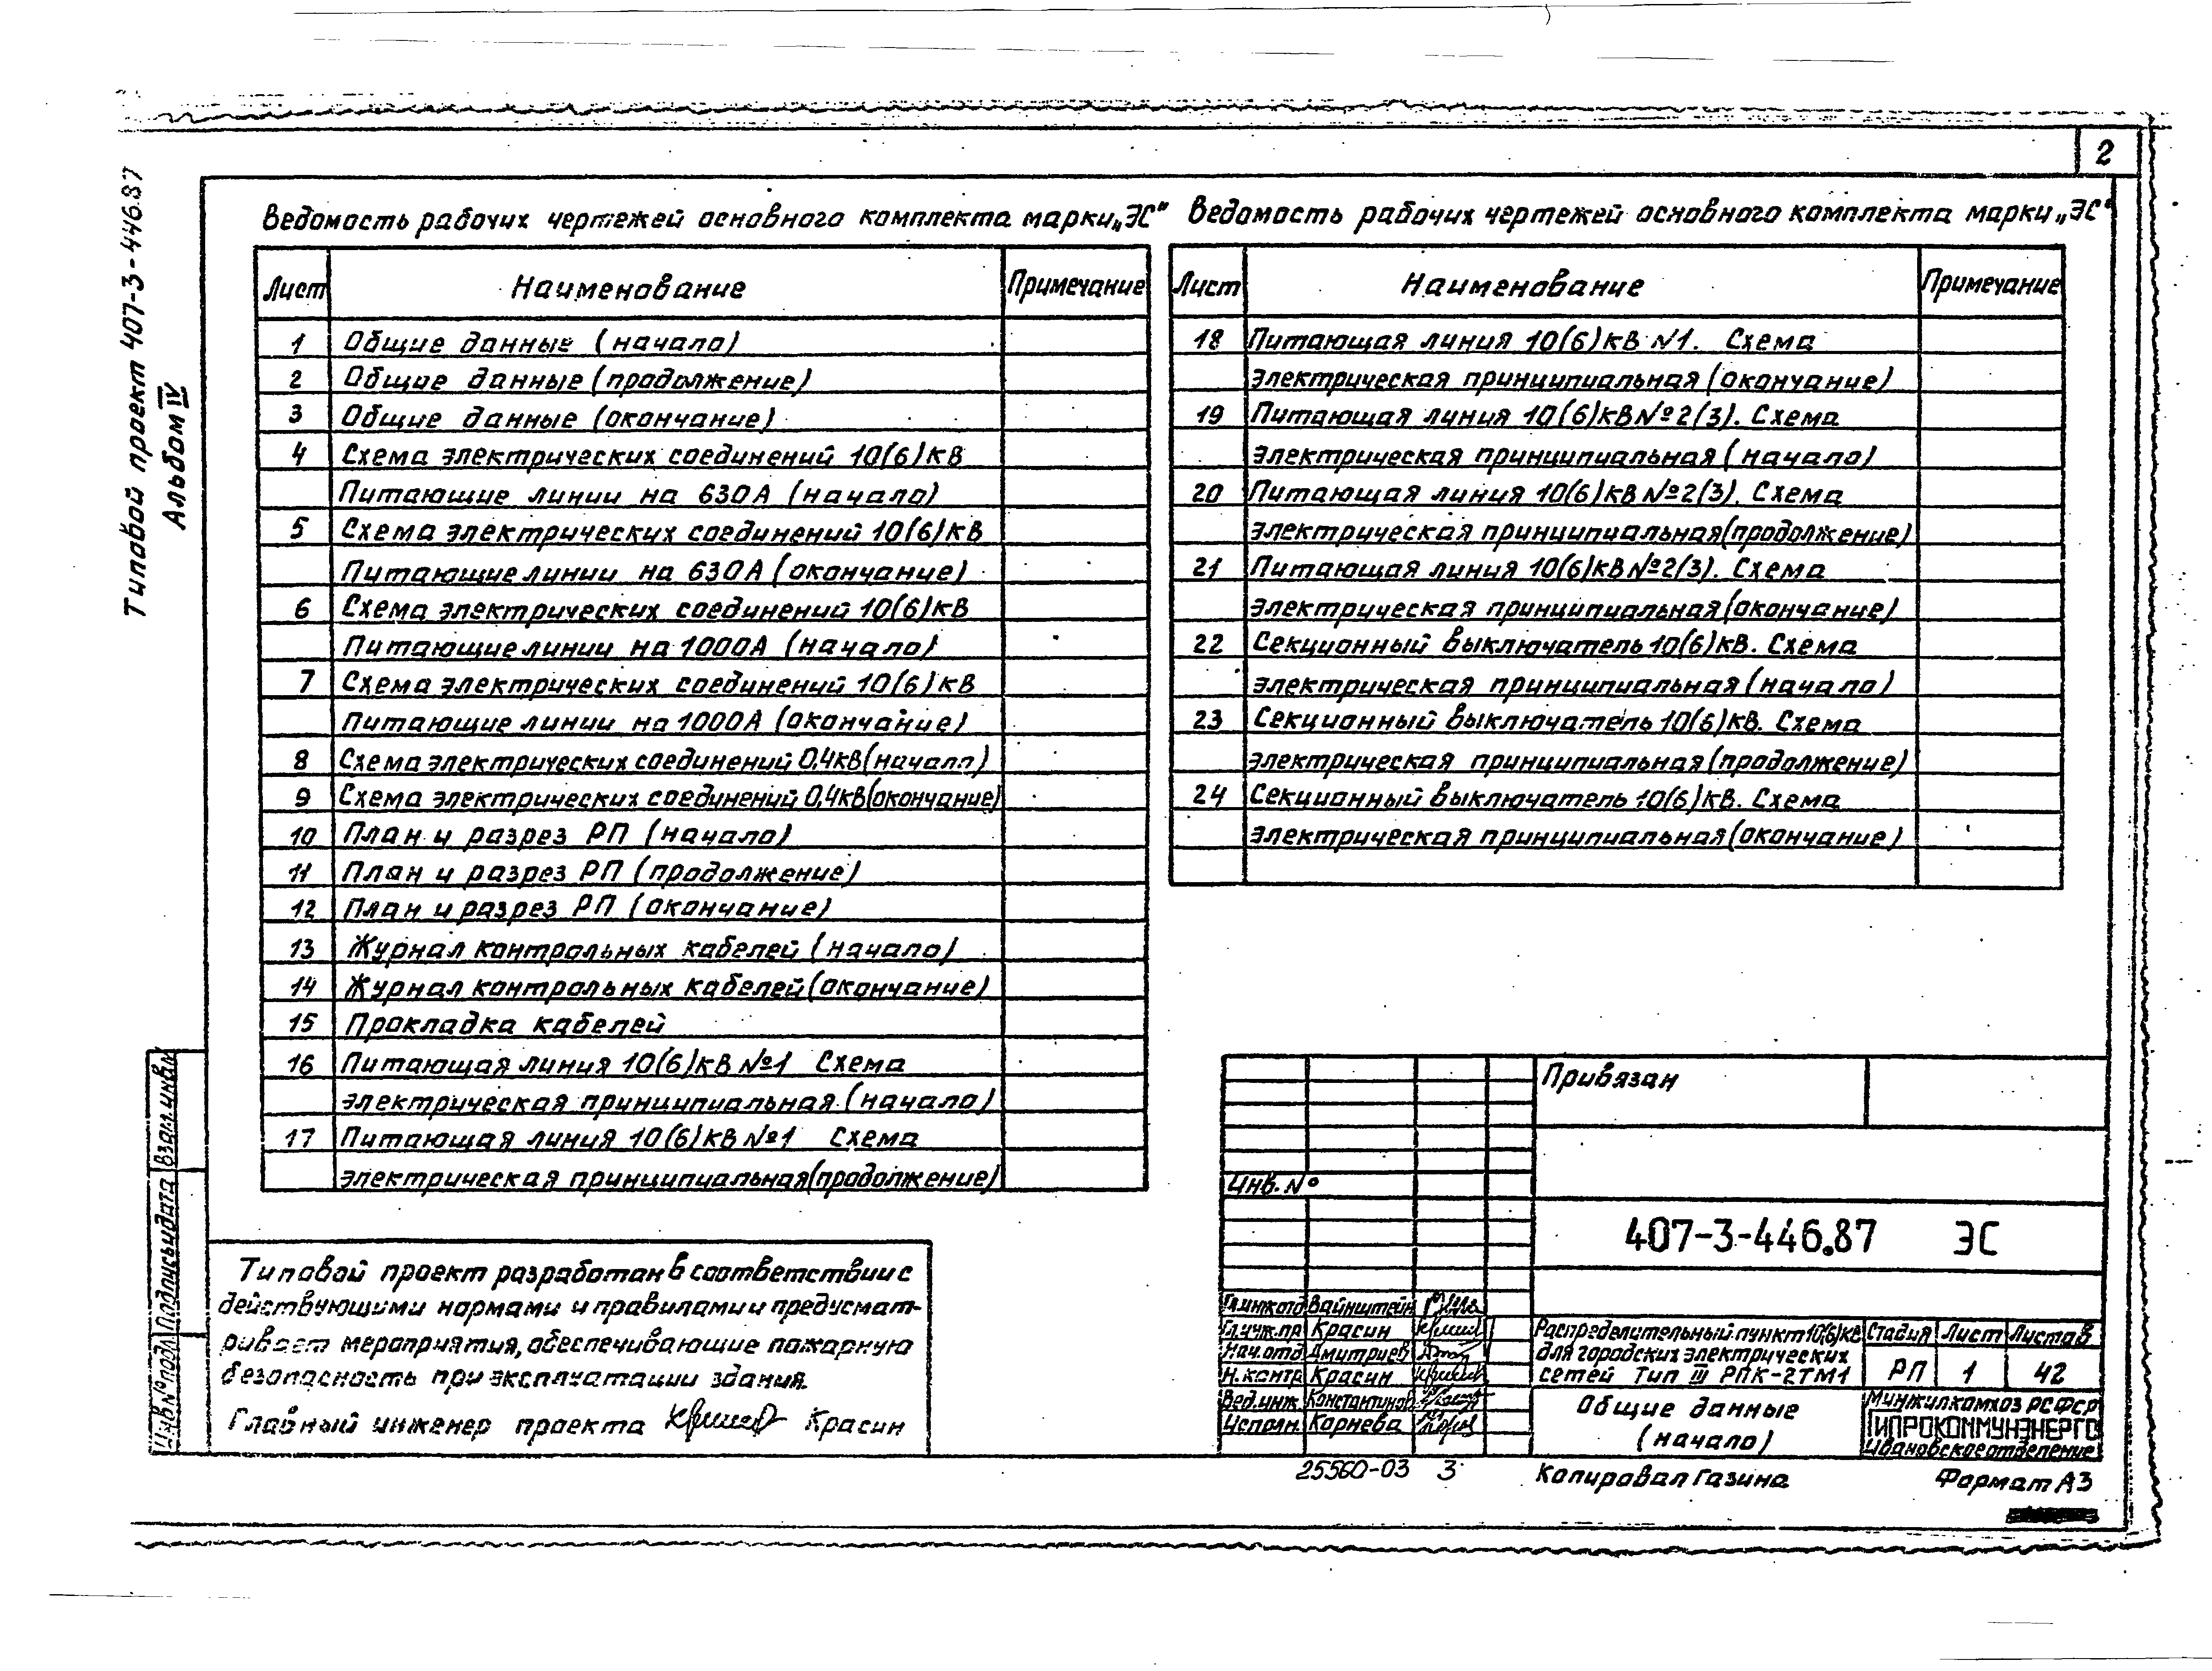 2
Типовой проект 407-3-446.87
Альбом IV
Ведомость рабочих чертежей основного комплекта марки „ЭС"
Лист Наименование Примечание
1 Общие данные (начало)
2 Общие данные (продолжение)
3 Общие данные (окончание)
4 Схема электрических соединений 10(6)кВ
Питающие линии на 630А (начало)
5 Схема электрических соединений 10(6)кВ
Питающие линии на 630А (окончание)
6 Схема электрических соединений 10(6)кВ
Питающие линии на 1000А (начало)
7 Схема электрических соединений 10(6)кВ
Питающие линии на 1000А (окончание)
8 Схема электрических соединений 0,4кВ(начало)
9 Схема электрических соединений 0,4кВ(окончание)
10 План и разрез РП (начало)
11 План и разрез РП (продолжение)
12 План и разрез РП (окончание)
13 Журнал контрольных кабелей (начало)
14 Журнал контрольных кабелей (окончание)
15 Прокладка кабелей
16 Питающая линия 10(6)кВ №1 Схема
электрическая принципиальная (начало)
17 Питающая линия 10(6)кВ №1 Схема
электрическая принципиальная(продолжение)
Ведомость рабочих чертежей основного комплекта марки „ЭС"
Лист Наименование Примечание
18 Питающая линия 10(6)кВ N1. Схема
электрическая принципиальная (окончание)
19 Питающая линия 10(6)кВ №2(3). Схема
электрическая принципиальная (начало)
20 Питающая линия 10(6)кВ №2(3). Схема
электрическая принципиальная(продолжение)
21 Питающая линия 10(6)кВ №2(3). Схема
электрическая принципиальная (окончание)
22 Секционный выключатель 10(6)кВ. Схема
электрическая принципиальная (начало)
23 Секционный выключатель 10(6)кВ. Схема
электрическая принципиальная (продолжение)
24 Секционный выключатель 10(6)кВ. Схема
электрическая принципиальная (окончание)
Типовой проект разработан в соответствии с
действующими нормами и правилами и предусмат-
ривает мероприятия, обеспечивающие пожарную
безопасность при эксплуатации здания.
Главный инженер проекта Красин
Инв.№ подл. Подпись и дата Взам.инв.№
Привязан
Инв. №
407-3-446.87 ЭС
Гл.инж.отд Вайнштейн
Гл.инж.пр. Красин
Нач.отд. Дмитриев
Н.контр. Красин
Вед.инж. Константинов
Исполн. Корнева
Распределительный пункт 10(6)кВ
для городских электрических
сетей Тип III РПК-2ТМ1
Стадия Лист Листов
РП 1 42
Общие данные
(начало)
Минжилкомхоз РСФСР
ГИПРОКОММУНЭНЕРГО
Ивановское отделение
25560-03 3
Копировал Газина
Формат А3